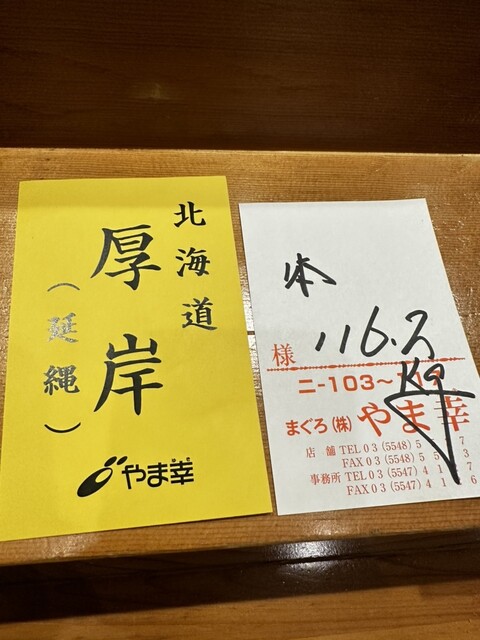 北海道
厚岸
（延縄）
やま幸
様
116.2
Kg
ニ-103～
まぐろ(株) やま幸
店舗 TEL 03 (5548) 5 7
FAX 03 (5548) 5 3
事務所 TEL 03 (5547) 4 1 7
FAX 03 (5547) 4 1 6